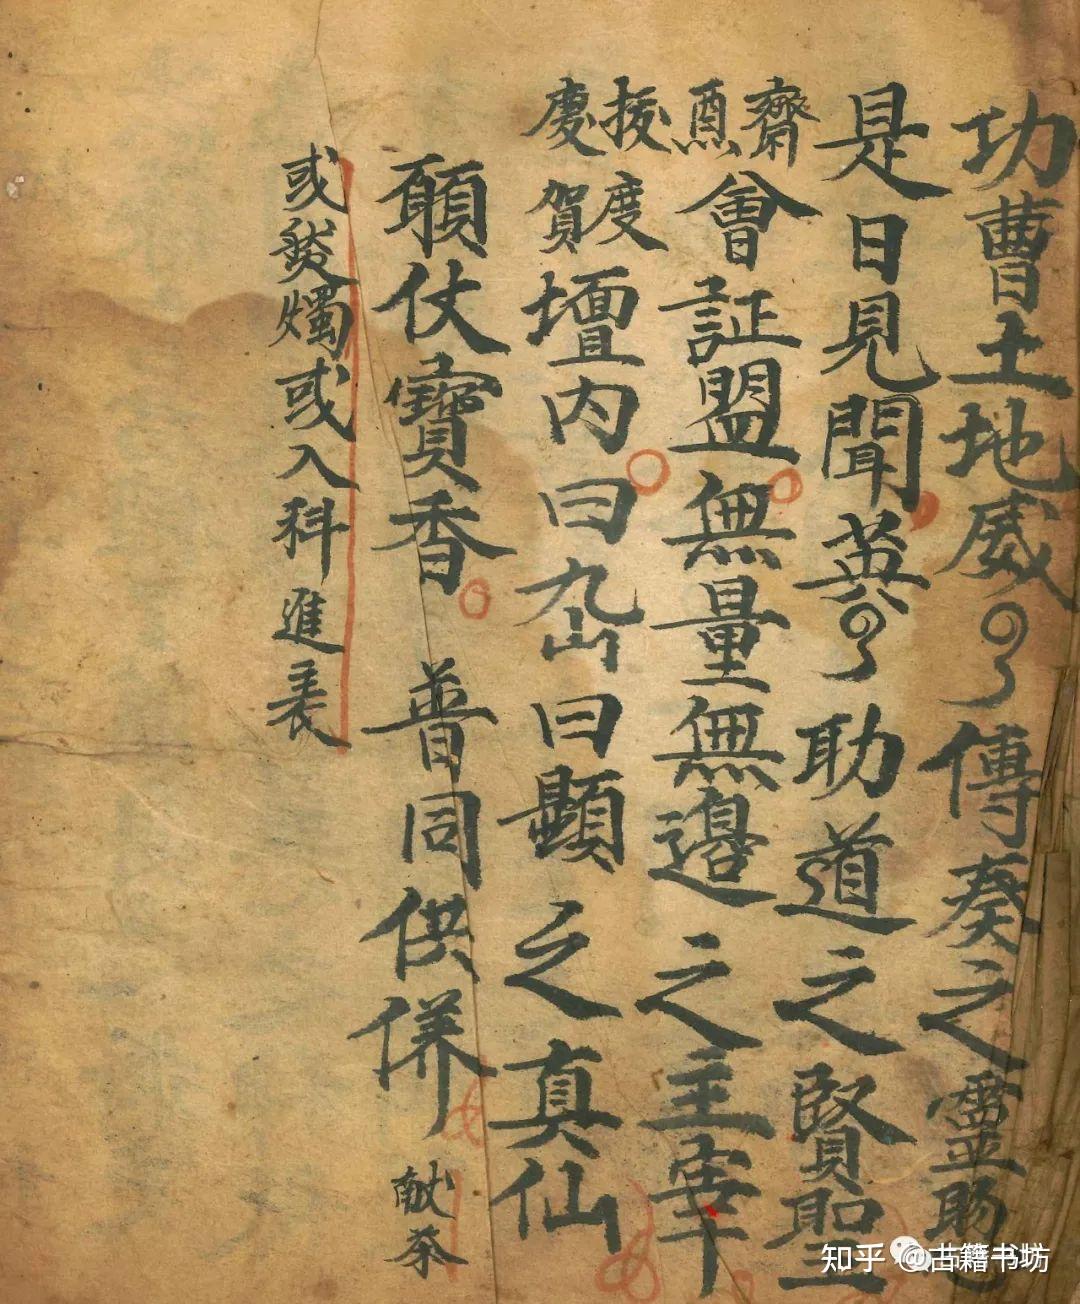 功曹土地威〻傳奏之靈
是日見聞英〻助道之賢聖
齋 醮
會証盟無量無邊之主宰
授度 慶賀
壇内曰 曰顯之真仙
願仗寶香 普同供養 献茶
或發燭或入科進表
知乎 @古籍书坊